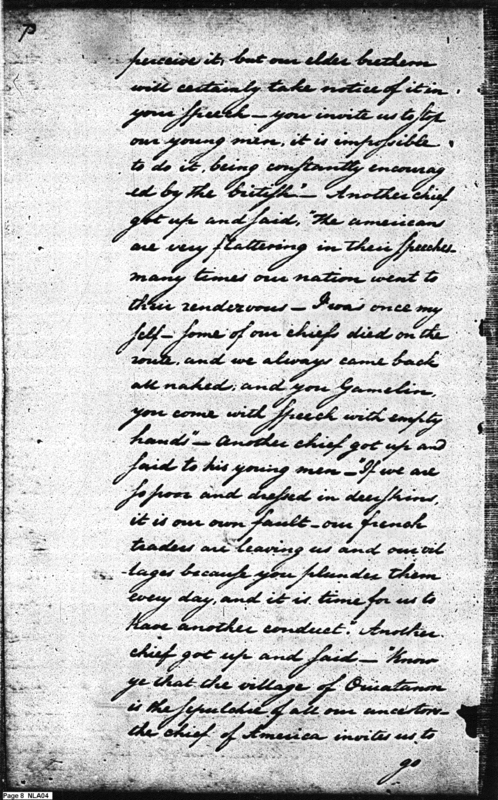 perceive it, but our elder brethern
will certainly take notice of it in
your speech — you invite us to stop
our young men, it is impossible
to do it, being constantly encourag
-ed by the british" — Another chief
got up and said, "The americans
are very flattering in their speeches
many times our nation went to
their rendervous — I was once my
self — some of our chiefs died on the
route, and we always came back
all naked; and you Gamelin,
you come with speech with empty
hands" — another chief got up and
said to his young men — "If we are
so poor and dressed in deerskins,
it is our own fault — our french
traders are leaving us and our vil
-lages because you plunder them
every day, and it is time for us to
have another conduct." Another
chief got up and said — "Know
ye that the village of Ouiatanon
is the sepulchre of all our ancestors —
the chief of America invites us to
go
Page 8 NLA04